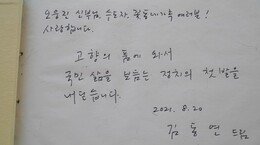 오웅진 신부님, 수도자, 꽃동네 가족 여러분!
사랑합니다.
고향의 품에 와서
국민 삶을 보듬는 정치의 첫 발을
내딛습니다.
2021. 8. 20
김동연 드림